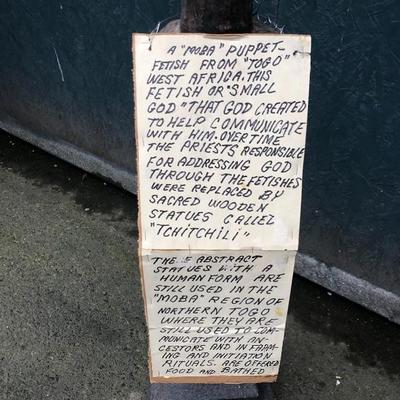 A "MOBA" PUPPET-
FETISH FROM "TOGO"
WEST AFRICA. THIS
FETISH OR "SMALL
GOD" THAT GOD CREATED
TO HELP COMMUNICATE
WITH HIM. OVERTIME
THE PRIESTS RESPONSIBLE
FOR ADDRESSING GOD
THROUGH THE FETISHES
WERE REPLACED BY
SACRED WOODEN
STATUES CALLED
"TCHITCHILI"
THESE ABSTRACT
STATUES WITH A
HUMAN FORM ARE
STILL USED IN THE
"MOBA" REGION OF
NORTHERN TOGO
WHERE THEY ARE
STILL USED TO COM-
MUNICATE WITH AN-
CESTORS AND IN FARM-
ING AND INITIATION
RITUALS. ARE OFFERED
FOOD AND BATHED